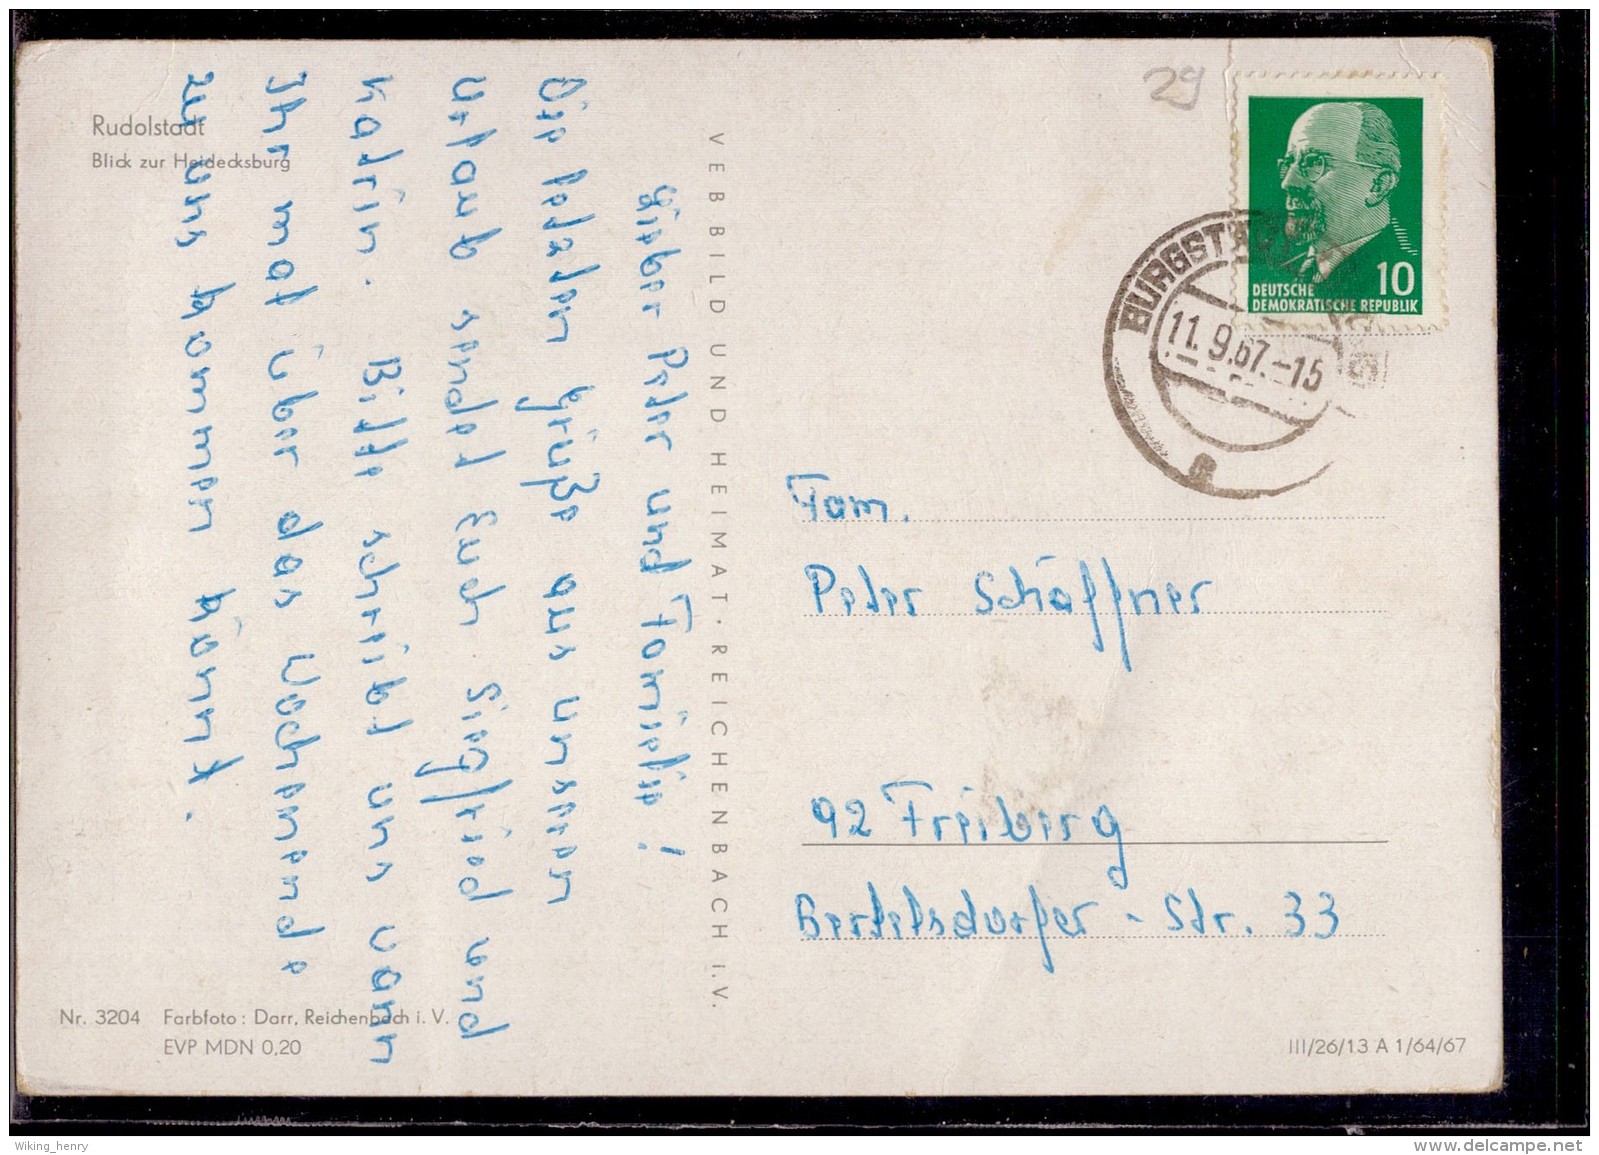 Rudolstadt
Blick zur Heidecksburg
Lieber Peter und Familie!
Die letzten Grüße aus unseren
Urlaub sendet Euch Siegfried und
Katrin. Bitte schreibt uns wann
Ihr mal über das Wochenende
zu uns kommen könnt.
VEB BILD UND HEIMAT · REICHENBACH I. V.
Nr. 3204 Farbfoto: Darr, Reichenbach i. V.
EVP MDN 0,20
29
10
DEUTSCHE
DEMOKRATISCHE REPUBLIK
11.9.67.-15
a
Fam.
Peter Schäffner
92 Freiberg
Bertelsdorfer - Str. 33
III/26/13 A 1/64/67
Wiking_henry
www.delcampe.net